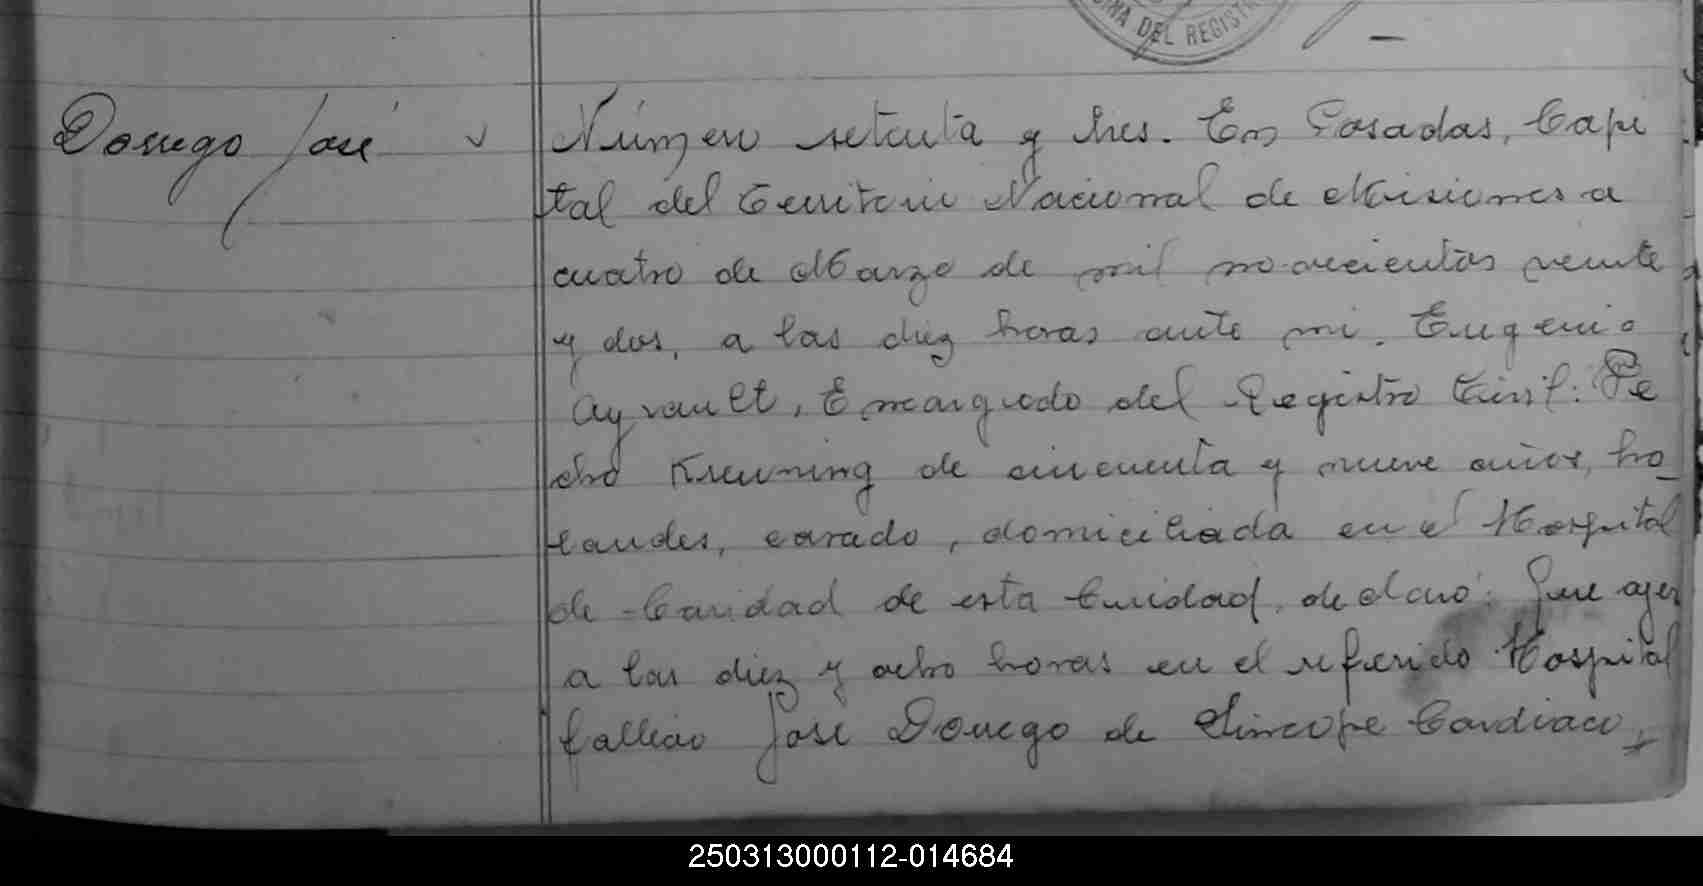 DEL REGISTR
Dorrego José
Número setenta y tres. En Posadas, Capi
tal del Territorio Nacional de Misiones a
cuatro de Marzo de mil novecientos veinte
y dos, a las diez horas ante mi. Eugenio
Ayrault, Encargado del Registro Civil: Pe
dro Kreuning de cincuenta y nueve años, ho_
landes, casado, domiciliada en el Hospital
de Caridad de esta Ciudad, declaró: Que ayer
a las diez y ocho horas en el referido Hospital
fallecio José Dorrego de Sincope Cardiaco,
250313000112-014684